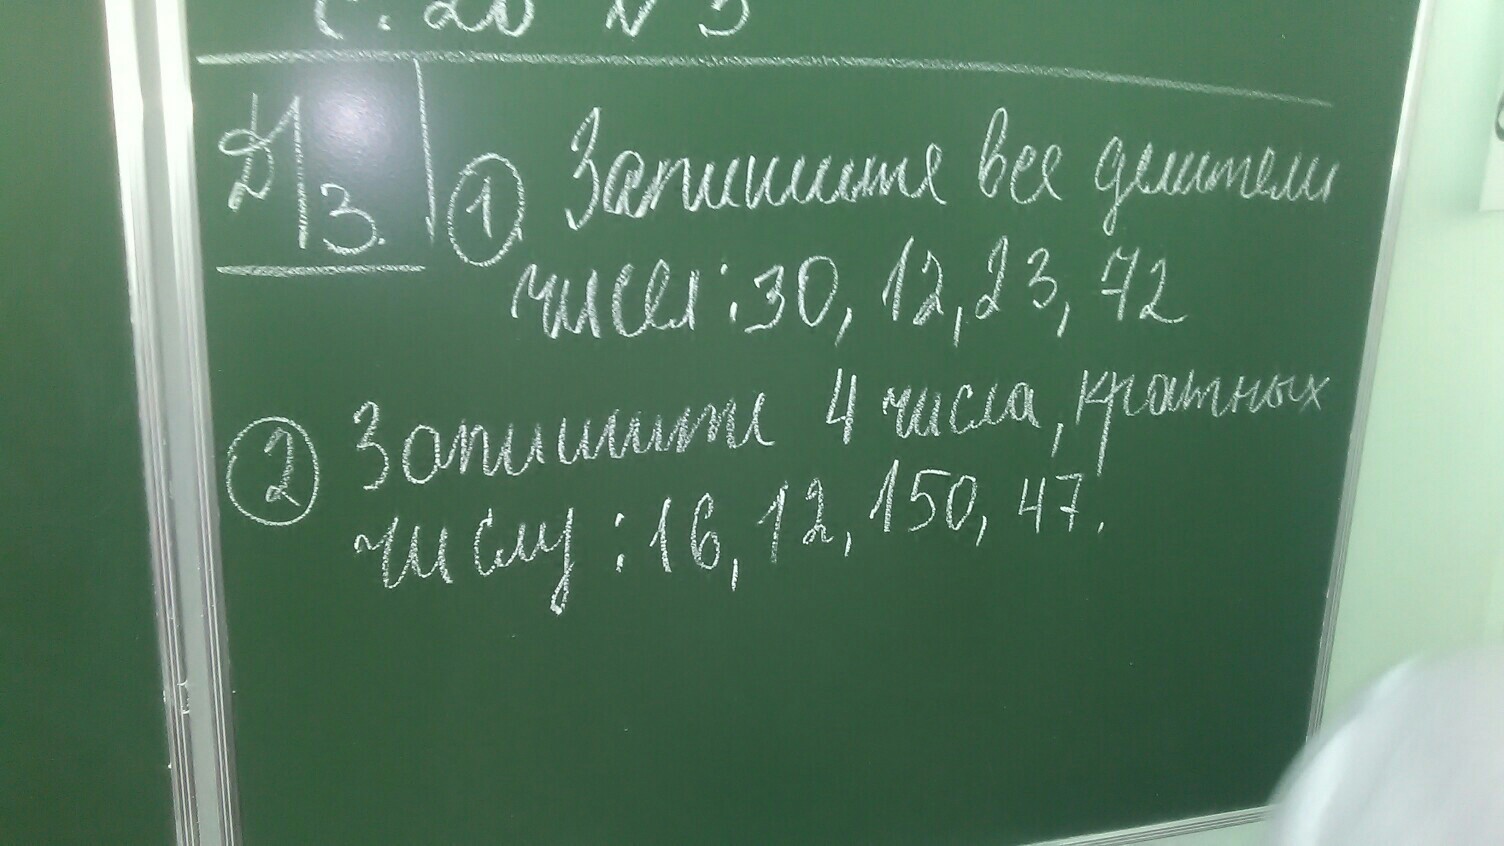 с. 20 № 5
Д/З. ① Запишите все делители
чисел: 30, 12, 23, 72
② Запишите 4 числа, кратных
числу: 16, 12, 150, 47.